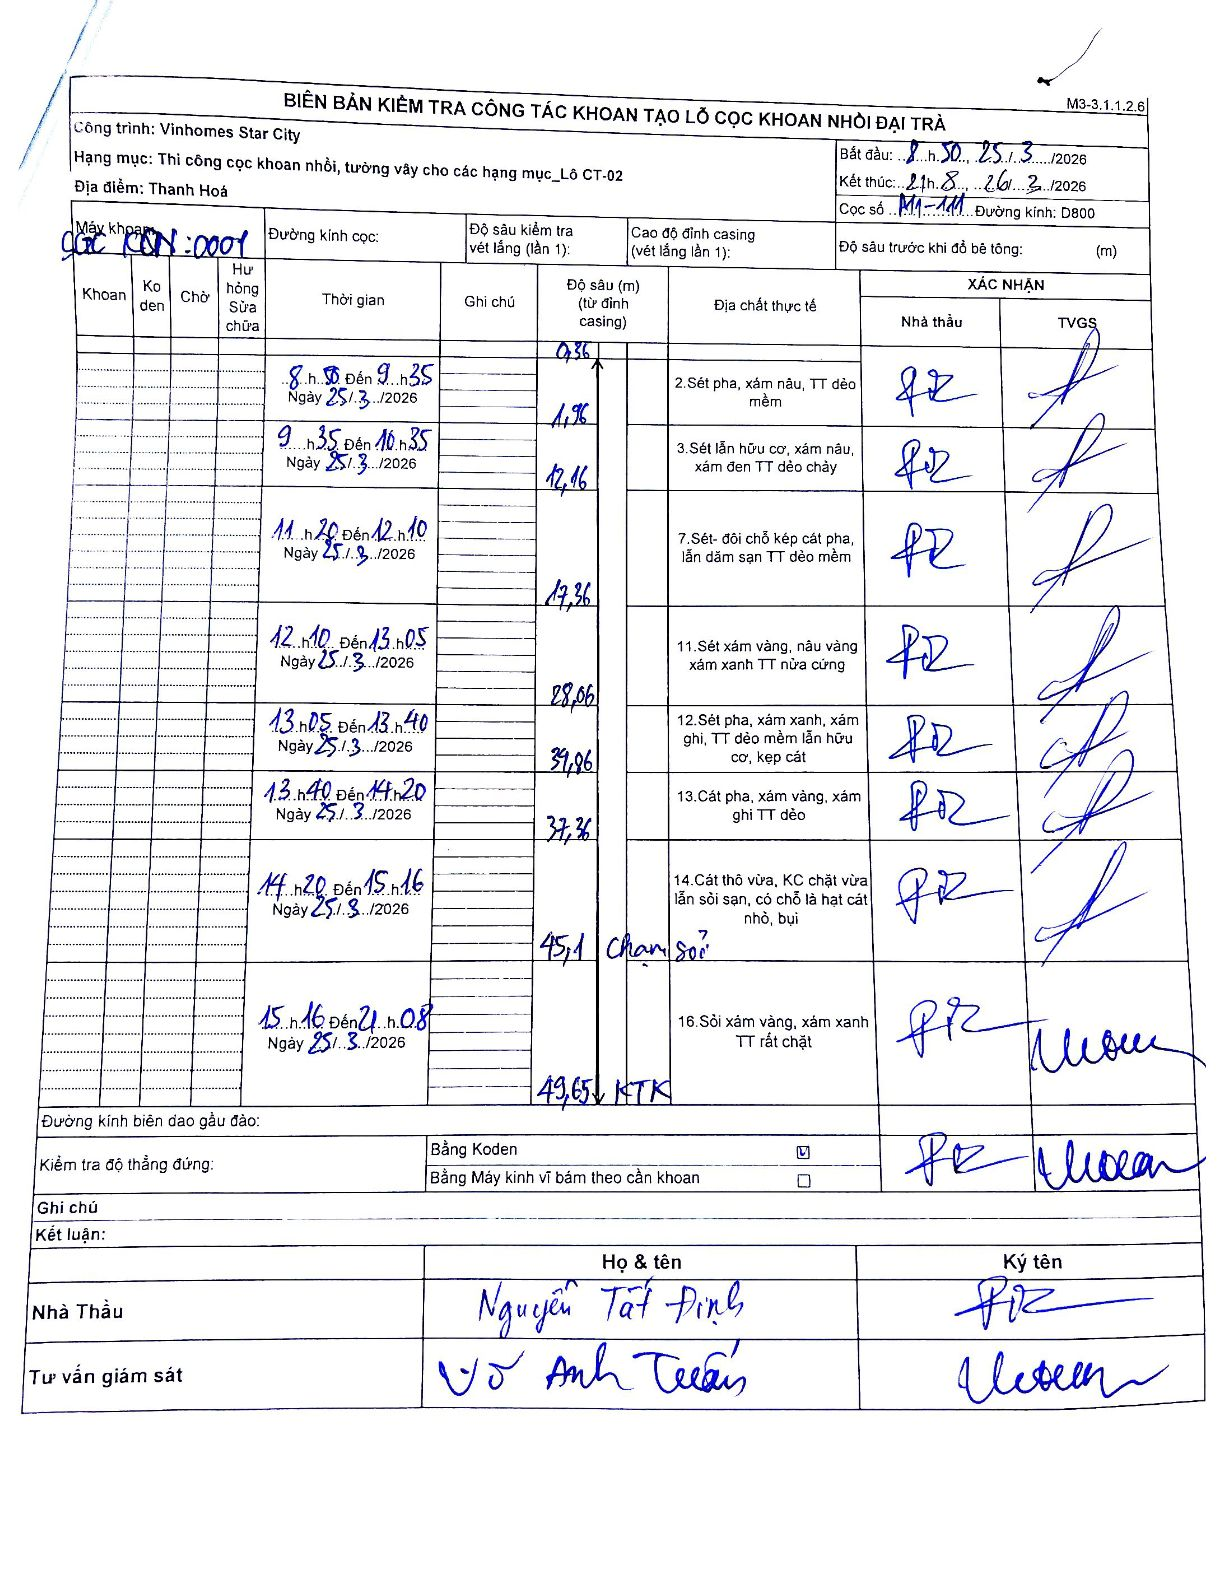 M3-3.1.1.2.6
BIÊN BẢN KIỂM TRA CÔNG TÁC KHOAN TẠO LỖ CỌC KHOAN NHỒI ĐẠI TRÀ
Công trình: Vinhomes Star City
Hạng mục: Thi công cọc khoan nhồi, tường vây cho các hạng mục_Lô CT-02
Địa điểm: Thanh Hoá
Bắt đầu: 8 h 50, 25/3/2026
Kết thúc: 21h 8, 26/3/2026
Cọc số M1-111 Đường kính: D800
Máy khoan
KDN: 0001
Đường kính cọc:
Độ sâu kiểm tra
vét lắng (lần 1):
Cao độ đỉnh casing
(vét lắng lần 1):
Độ sâu trước khi đổ bê tông: (m)
Khoan
Ko
den
Chờ
Hư
hỏng
Sửa
chữa
Thời gian
Ghi chú
Độ sâu (m)
(từ đỉnh
casing)
Địa chất thực tế
XÁC NHẬN
Nhà thầu
TVGS
0,36
8 h 50 Đến 9 h 35
Ngày 25/3/2026
1,96
2.Sét pha, xám nâu, TT dẻo
mềm
9 h 35 Đến 10 h 35
Ngày 25/3/2026
12,16
3.Sét lẫn hữu cơ, xám nâu,
xám đen TT dẻo chảy
11 h 20 Đến 12 h 10
Ngày 25/3/2026
17,36
7.Sét- đôi chỗ kép cát pha,
lẫn dăm sạn TT dẻo mềm
12 h 10 Đến 13 h 05
Ngày 25/3/2026
28,06
11.Sét xám vàng, nâu vàng
xám xanh TT nửa cứng
13 h 05 Đến 13 h 40
Ngày 25/3/2026
12.Sét pha, xám xanh, xám
ghi, TT dẻo mềm lẫn hữu
cơ, kẹp cát
13 h 40 Đến 14 h 20
Ngày 25/3/2026
37,36
13.Cát pha, xám vàng, xám
ghi TT dẻo
14 h 20 Đến 15 h 16
Ngày 25/3/2026
45,1 Chạm sỏi
14.Cát thô vừa, KC chặt vừa
lẫn sỏi sạn, có chỗ là hạt cát
nhỏ, bụi
15 h 16 Đến 21 h 08
Ngày 25/3/2026
49,65 KTK
16.Sỏi xám vàng, xám xanh
TT rất chặt
Đường kính biên dao gầu đào:
Kiểm tra độ thẳng đứng:
Bằng Koden
Bằng Máy kinh vĩ bám theo cần khoan
Ghi chú
Kết luận:
Họ & tên
Ký tên
Nhà Thầu
Nguyễn Tất Định
Tư vấn giám sát
Võ Anh Tuấn